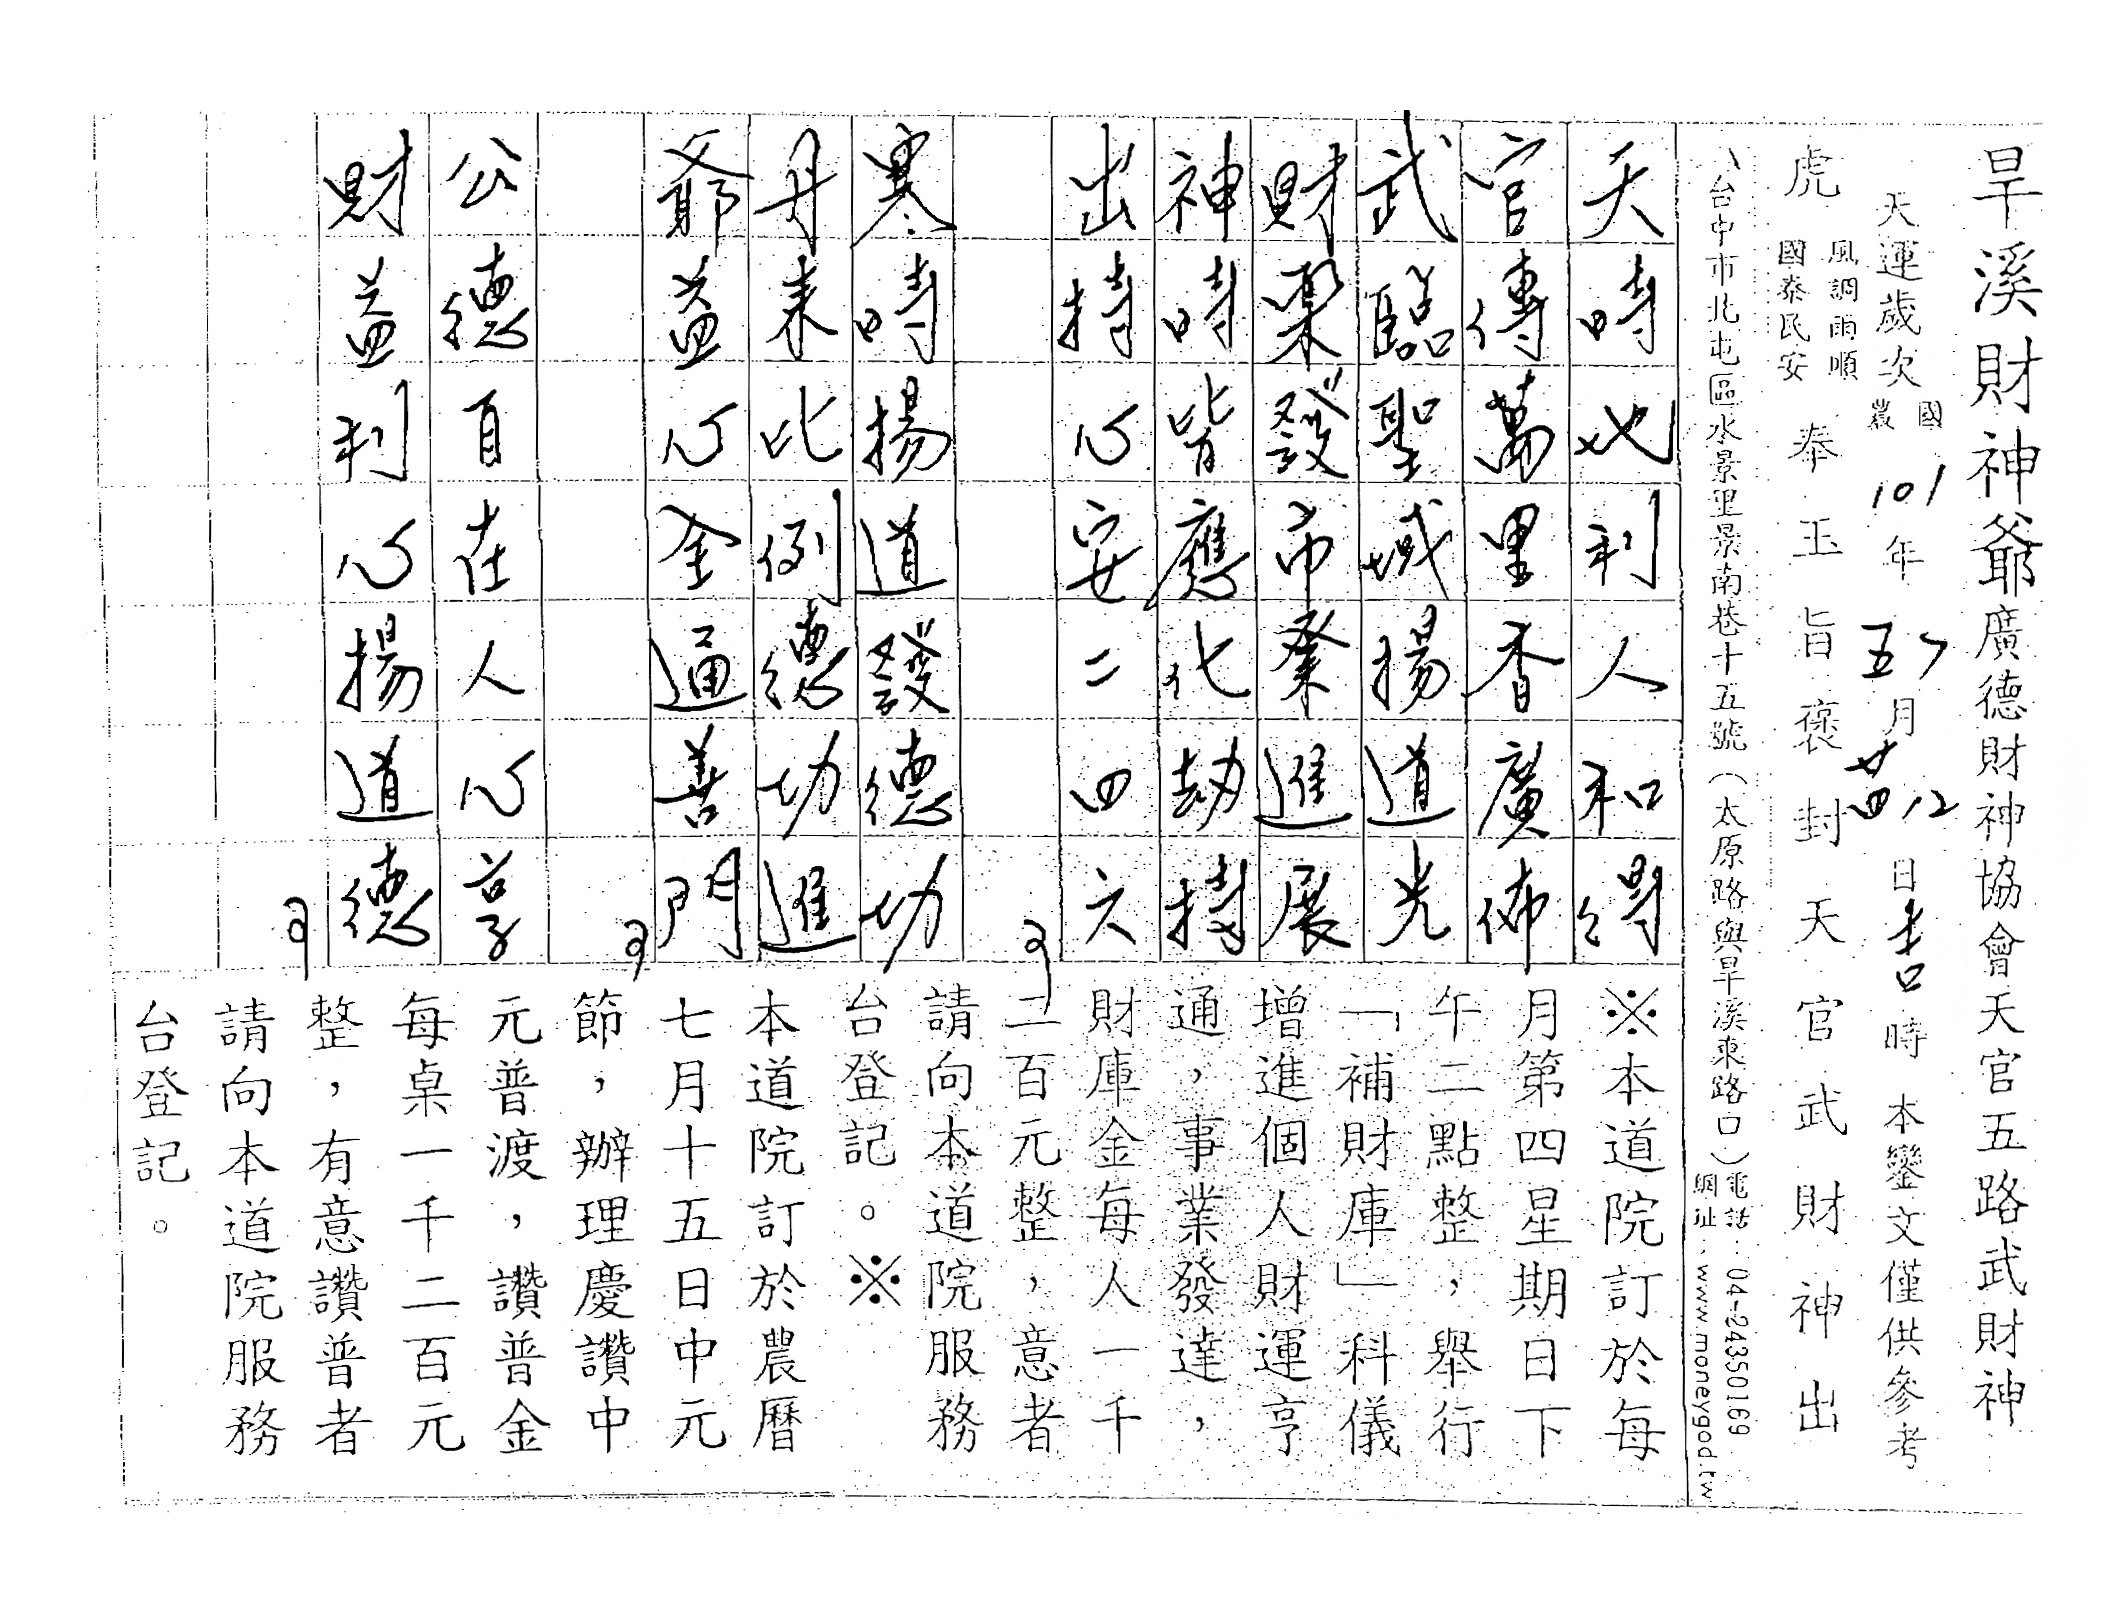 旱溪財神爺廣德財神協會天官五路武財神
天運歲次國農101年7五月12廿四日吉時 本鑾文僅供參考
虎 風調雨順 國泰民安 奉玉旨褒封天官武財神出
台中市北屯區水景里景南巷十五號(太原路與旱溪東路口)電話:04-24350169
網址:www.moneygod.tw
天時地利人和得
官傳萬里香廣佈
武臨聖域揚道光
財聚發市業進展
神時皆應化劫持
出持心安二四六
寒時揚道發德功
丹來比例德功進
爺益心金通善門
公德自在人心享
財益利心揚道德
※本道院訂於每
月第四星期日下
午二點整,舉行
「補財庫」科儀
增進個人財運亨
通,事業發達,
財庫金每人一千
二百元整,意者
請向本道院服務
台登記。※
本道院訂於農曆
七月十五日中元
節,辦理慶讚中
元普渡,讚普金
每桌一千二百元
整,有意讚普者
請向本道院服務
台登記。